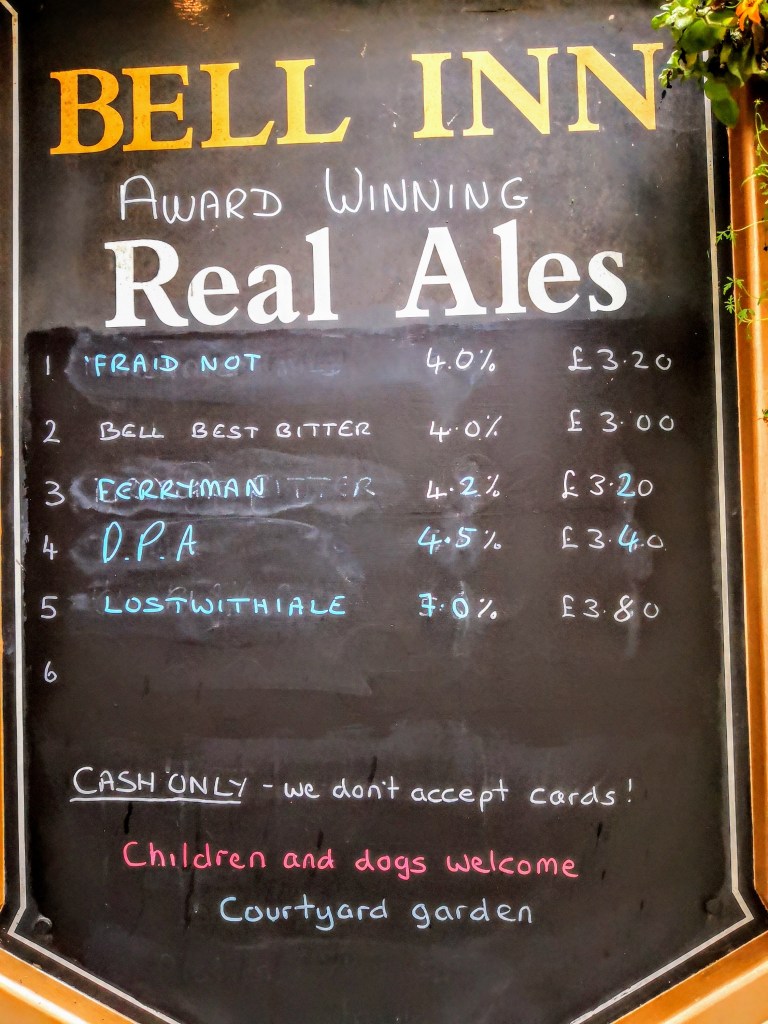 BELL INN
AWARD WINNING
Real Ales
1 'FRAID NOT 4.0% £3.20
2 BELL BEST BITTER 4.0% £3.00
3 FERRYMAN 4.2% £3.20
4 D.P.A 4.5% £3.40
5 LOSTWITHIALE 7.0% £3.80
6
CASH ONLY - we don't accept cards!
Children and dogs welcome
Courtyard garden